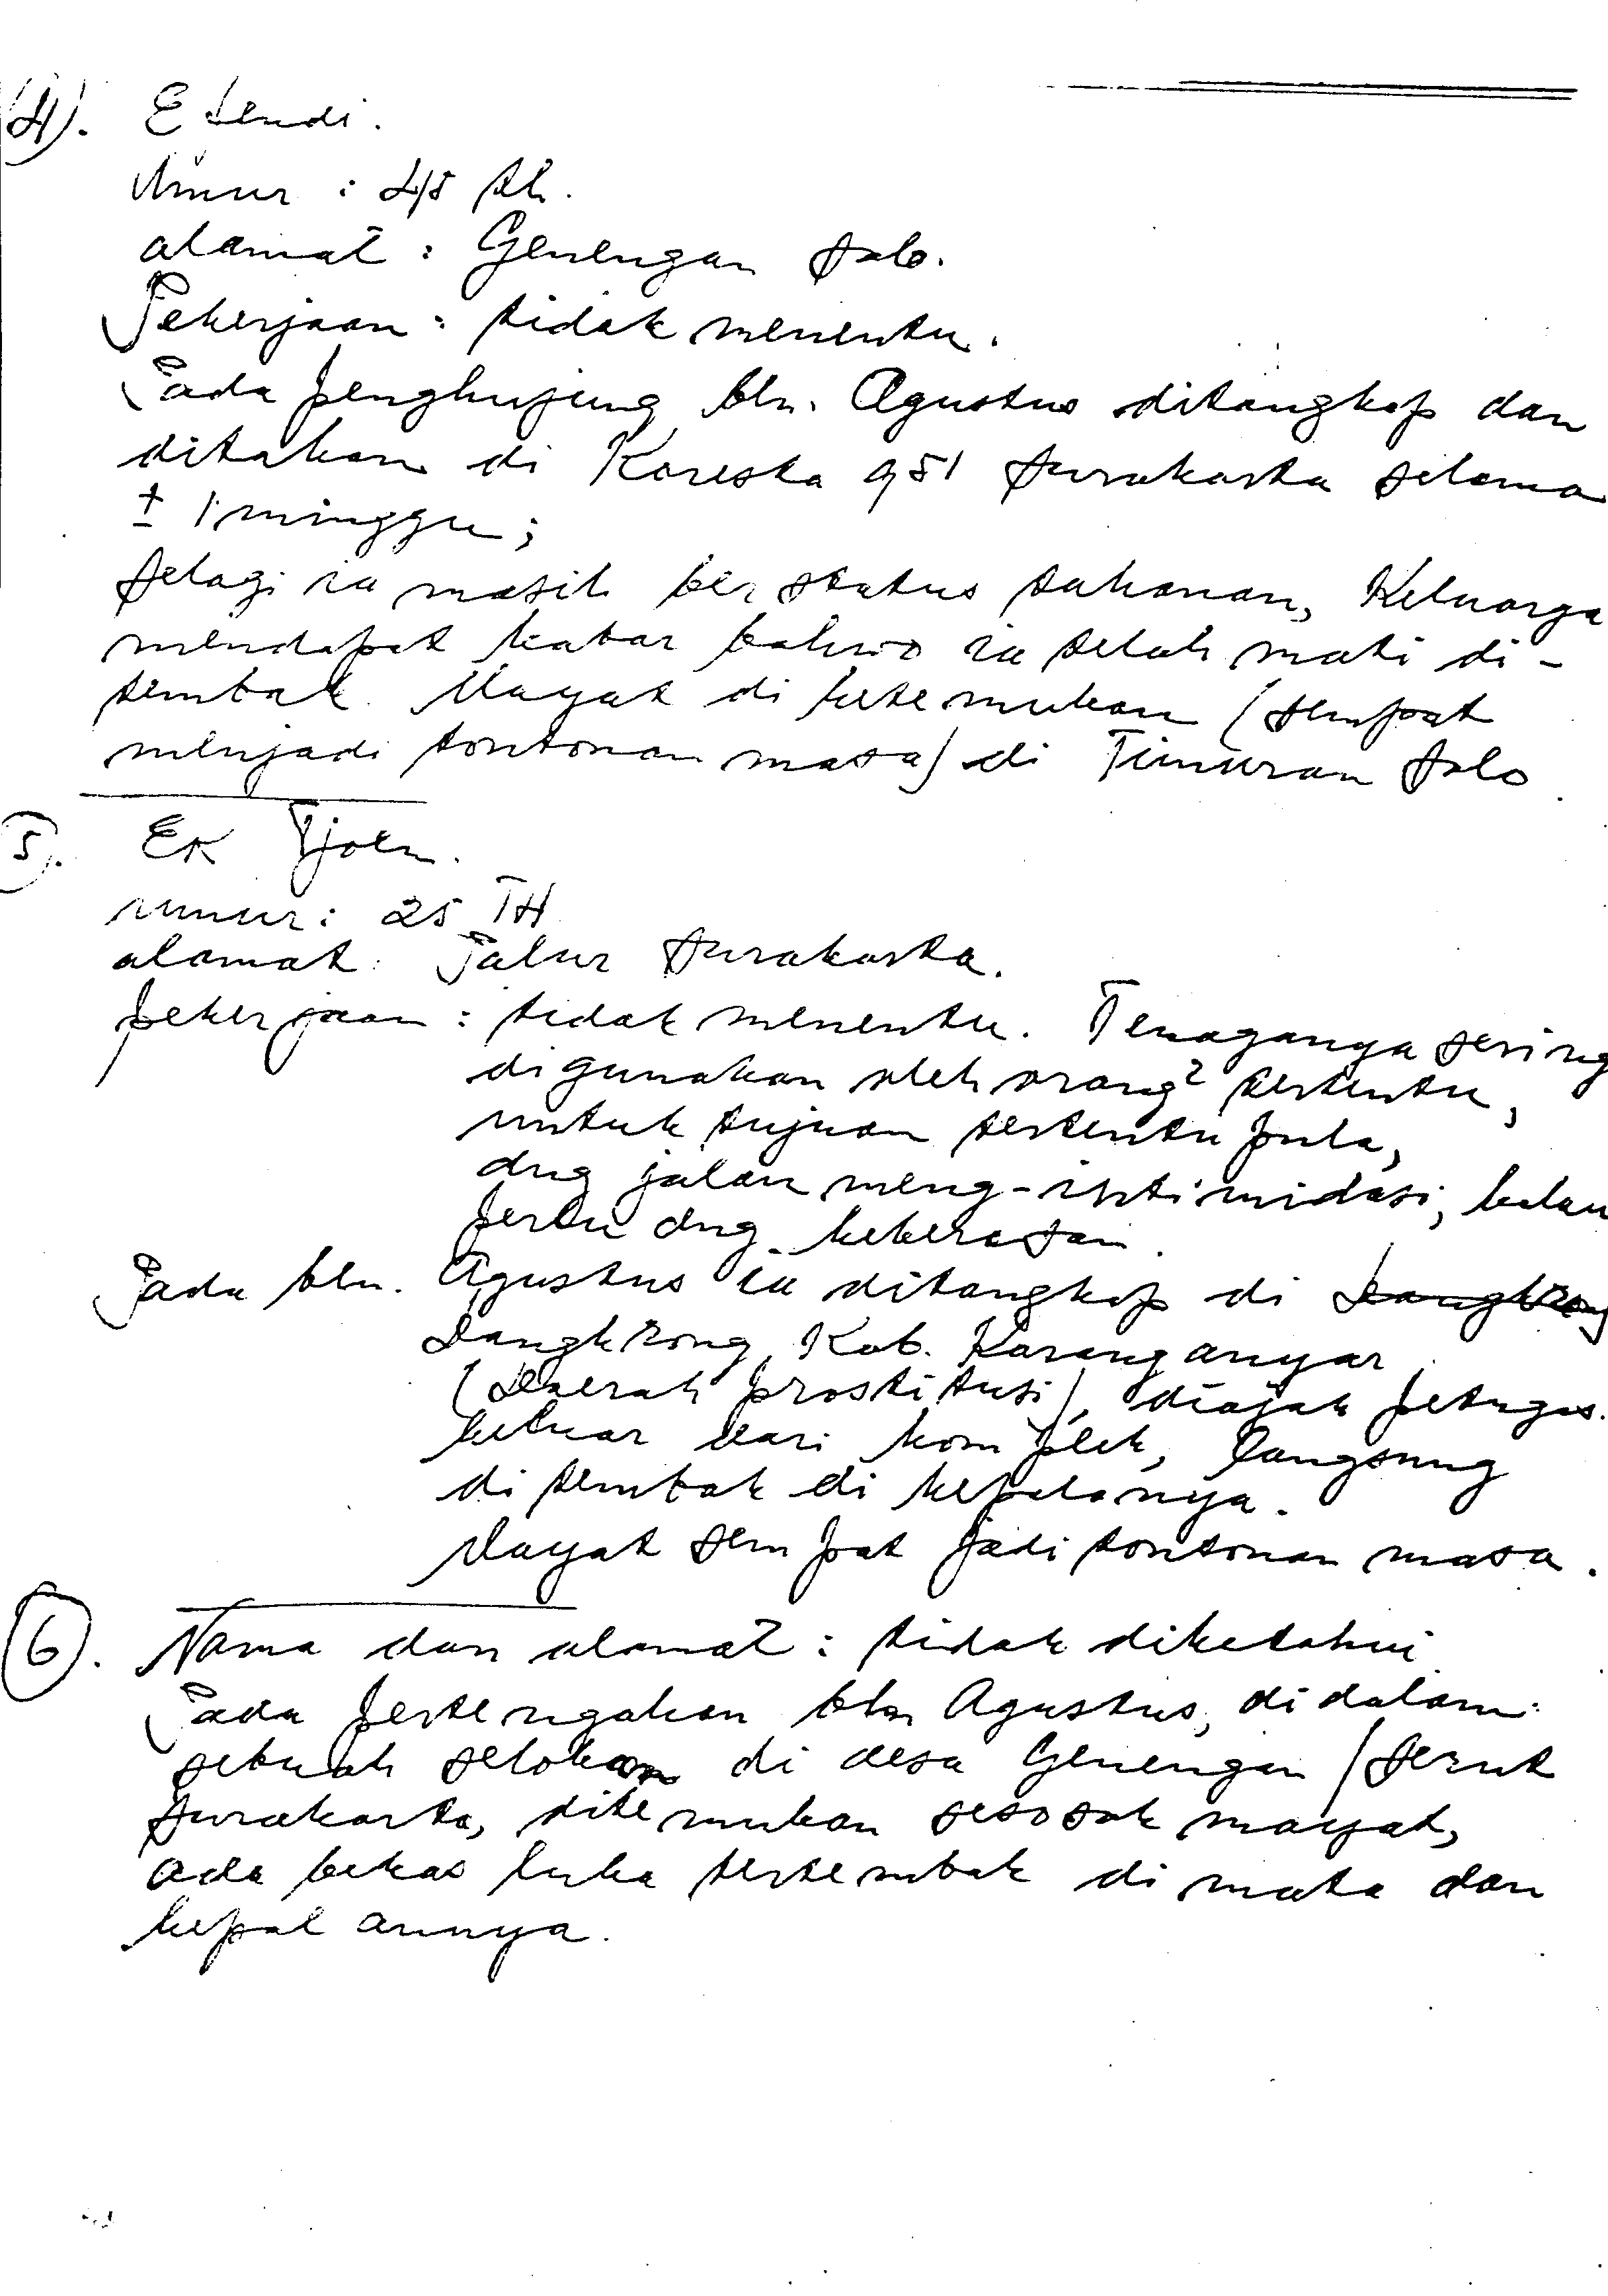 (4). Efendi.
Umur : 45 th.
alamat : Genengan Solo.
Pekerjaan : tidak menentu.
Pada penghujung bln. Agustus ditangkap dan
ditahan di Koresta 951 Surakarta selama
± 1 minggu ;
Selagi ia masih ber status tahanan, Keluarga
mendapat kabar bahwa ia telah mati di-
tembak. Mayat di ketemukan (sempat
menjadi tontonan masa) di Timuran Solo.
5). EK Tjoen.
umur : 25 TH
alamat : Jalur Surakarta.
pekerjaan : tidak menentu. Tenaganya sering
digunakan oleh orang² tertentu,
untuk tujuan tertentu pula,
dng jalan meng-intimidasi, kalau
perlu dng kekerasan.
Pada bln. Agustus ia ditangkap di
Dangkrong, Kab. Karanganyar
(Daerah prostitusi), diajak petugas
keluar dari komplek, langsung
di tembak di kepalanya.
Mayat sempat jadi tontonan masa.
(6). Nama dan alamat : tidak diketahui
Pada pertengahan bln Agustus, didalam
sebuah selokan di desa Genengan / Serut
Surakarta, ditemukan sesosok mayat,
ada bekas luka tertembak di mata dan
kepalannya.